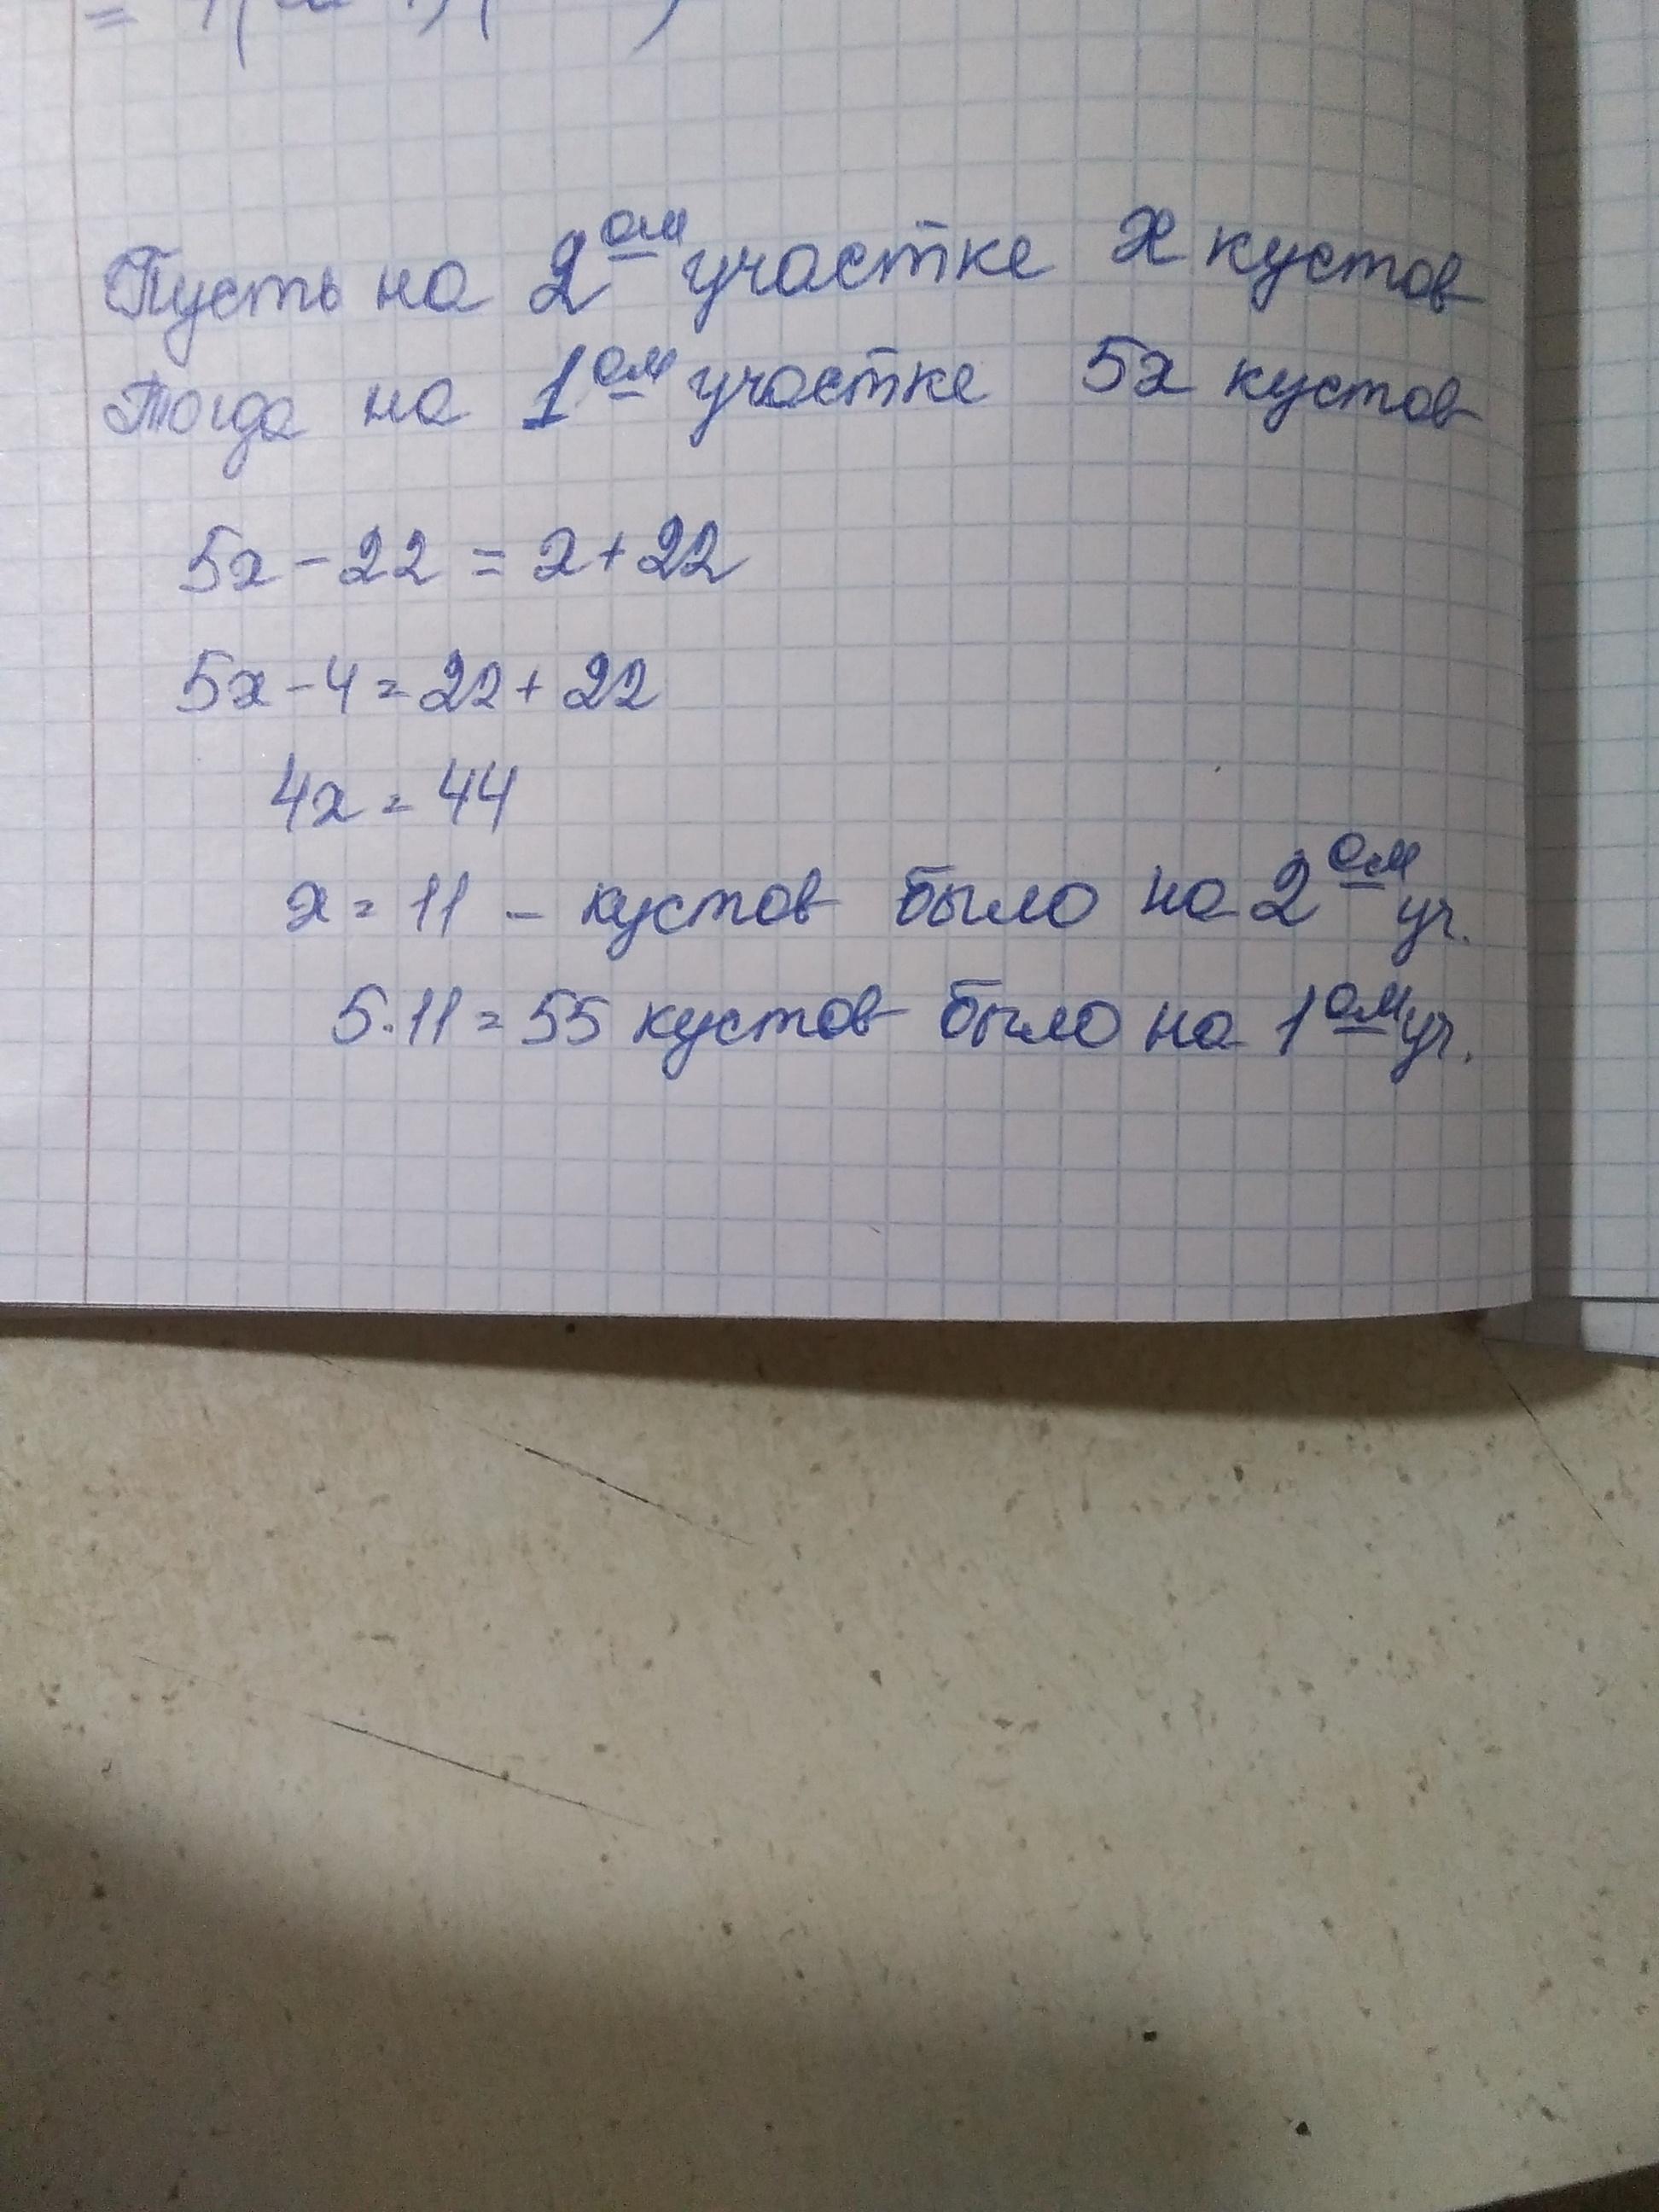 Пусть на 2ом участке x кустов
Тогда на 1ом участке 5x кустов
5x - 22 = x + 22
5x - 4 = 22 + 22
4x = 44
x = 11 - кустов было на 2ом уч.
5·11 = 55 кустов было на 1ом уч.